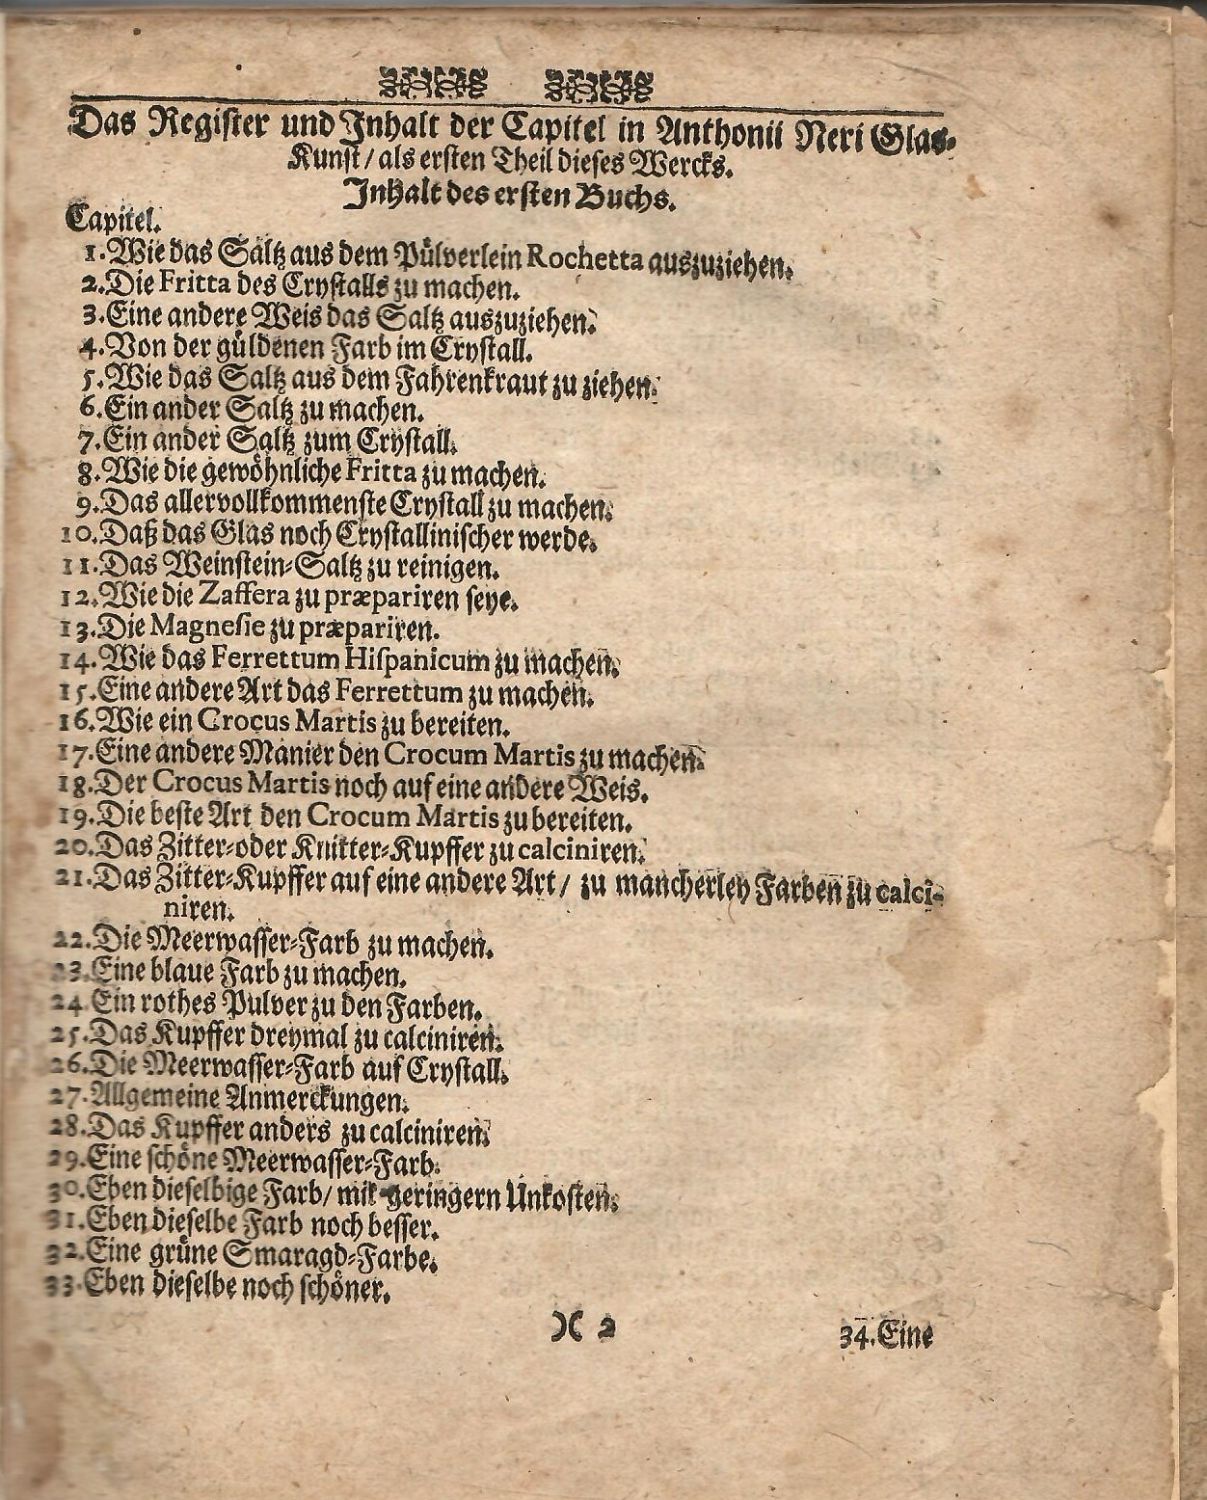 Das Register und Inhalt der Capitel in Anthonii Neri Glas-
Kunst / als ersten Theil dieses Wercks.
Inhalt des ersten Buchs.
Capitel.
1. Wie das Saltz aus dem Pülverlein Rochetta auszuziehen.
2. Die Fritta des Crystalls zu machen.
3. Eine andere Weis das Saltz auszuziehen.
4. Von der güldenen Farb im Crystall.
5. Wie das Saltz aus dem Fahrenkraut zu ziehen.
6. Ein ander Saltz zu machen.
7. Ein ander Saltz zum Crystall.
8. Wie die gewöhnliche Fritta zu machen.
9. Das allervollkommenste Crystall zu machen.
10. Daß das Glas noch Crystallinischer werde.
11. Das Weinstein-Saltz zu reinigen.
12. Wie die Zaffera zu præpariren seye.
13. Die Magnesie zu præpariren.
14. Wie das Ferrettum Hispanicum zu machen.
15. Eine andere Art das Ferrettum zu machen.
16. Wie ein Crocus Martis zu bereiten.
17. Eine andere Manier den Crocum Martis zu machen.
18. Der Crocus Martis noch auf eine andere Weis.
19. Die beste Art den Crocum Martis zu bereiten.
20. Das Zitter- oder Knitter-Kupffer zu calciniren.
21. Das Zitter-Kupffer auf eine andere Art / zu mancherley Farben zu calci-
niren.
22. Die Meerwasser-Farb zu machen.
23. Eine blaue Farb zu machen.
24. Ein rothes Pulver zu den Farben.
25. Das Kupffer dreymal zu calciniren.
26. Die Meerwasser-Farb auf Crystall.
27. Allgemeine Anmerckungen.
28. Das Kupffer anders zu calciniren.
29. Eine schöne Meerwasser-Farb.
30. Eben dieselbige Farb / mit geringern Unkosten.
31. Eben dieselbe Farb noch besser.
32. Eine grüne Smaragd-Farbe.
33. Eben dieselbe noch schöner.
)( 2
34. Eine